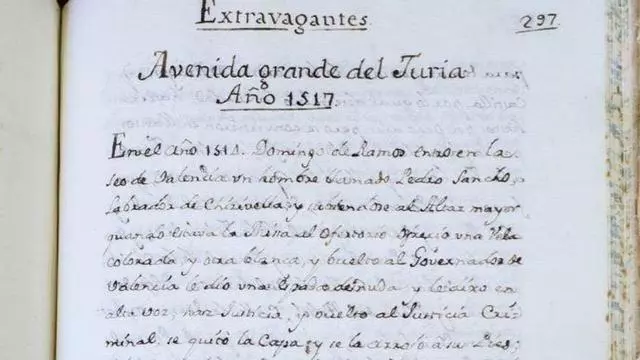 Extravagantes
297
Avenida grande del Turia
Año 1517
En el año 1514. Domingo de Ramos entro en la
seo de Valencia un hombre llamado Pedro Sancho,
Labrador de Chirivella, y al Altar mayor
quando estava la Missa al Ofertorio ofrecio una Vela
colorada, y otra blanca, y buelto al Governador de
Valencia le dio una Espada desnuda, y le dixo en
alta voz, haz Justicia, y buelto al Justicia Cri-
minal, se quitó la Capa, y se la arrojó a sus Pies;